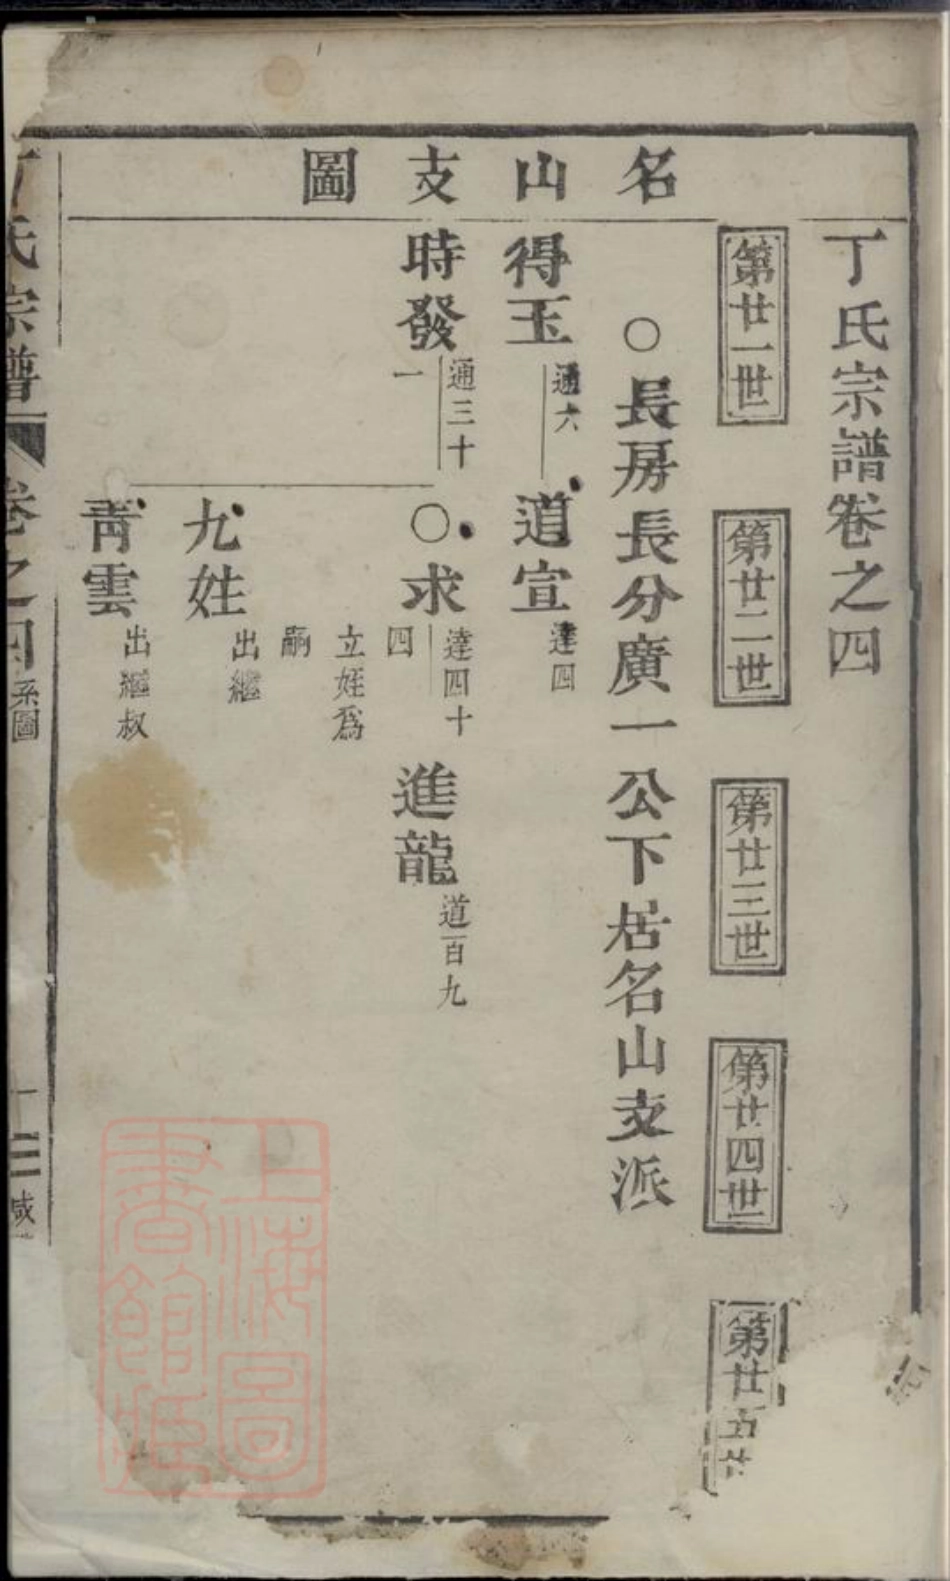 名山支圖
丁氏宗譜卷之四
第廿一世
第廿二世
第廿三世
第廿四世
第廿五世
○長房長分廣一公下居名山支派
得玉
通六
道宣
達四
時發
通三十一
○求
達四十四
立姪爲嗣
進龍
道百九
九姓
出繼
靑雲
出繼叔
丁氏宗譜
卷之四
系圖
咸
上海圖書館